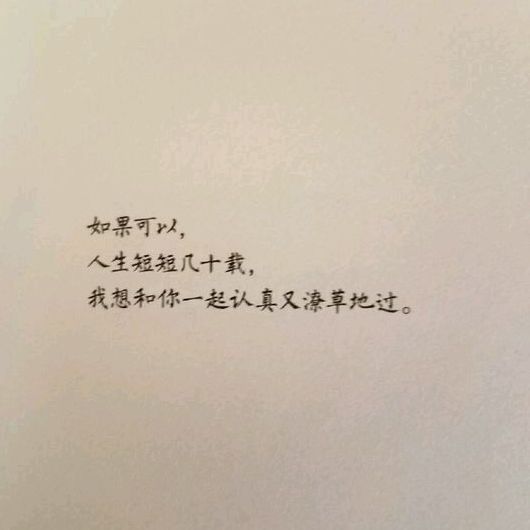 如果可以，
人生短短几十载，
我想和你一起认真又潦草地过。